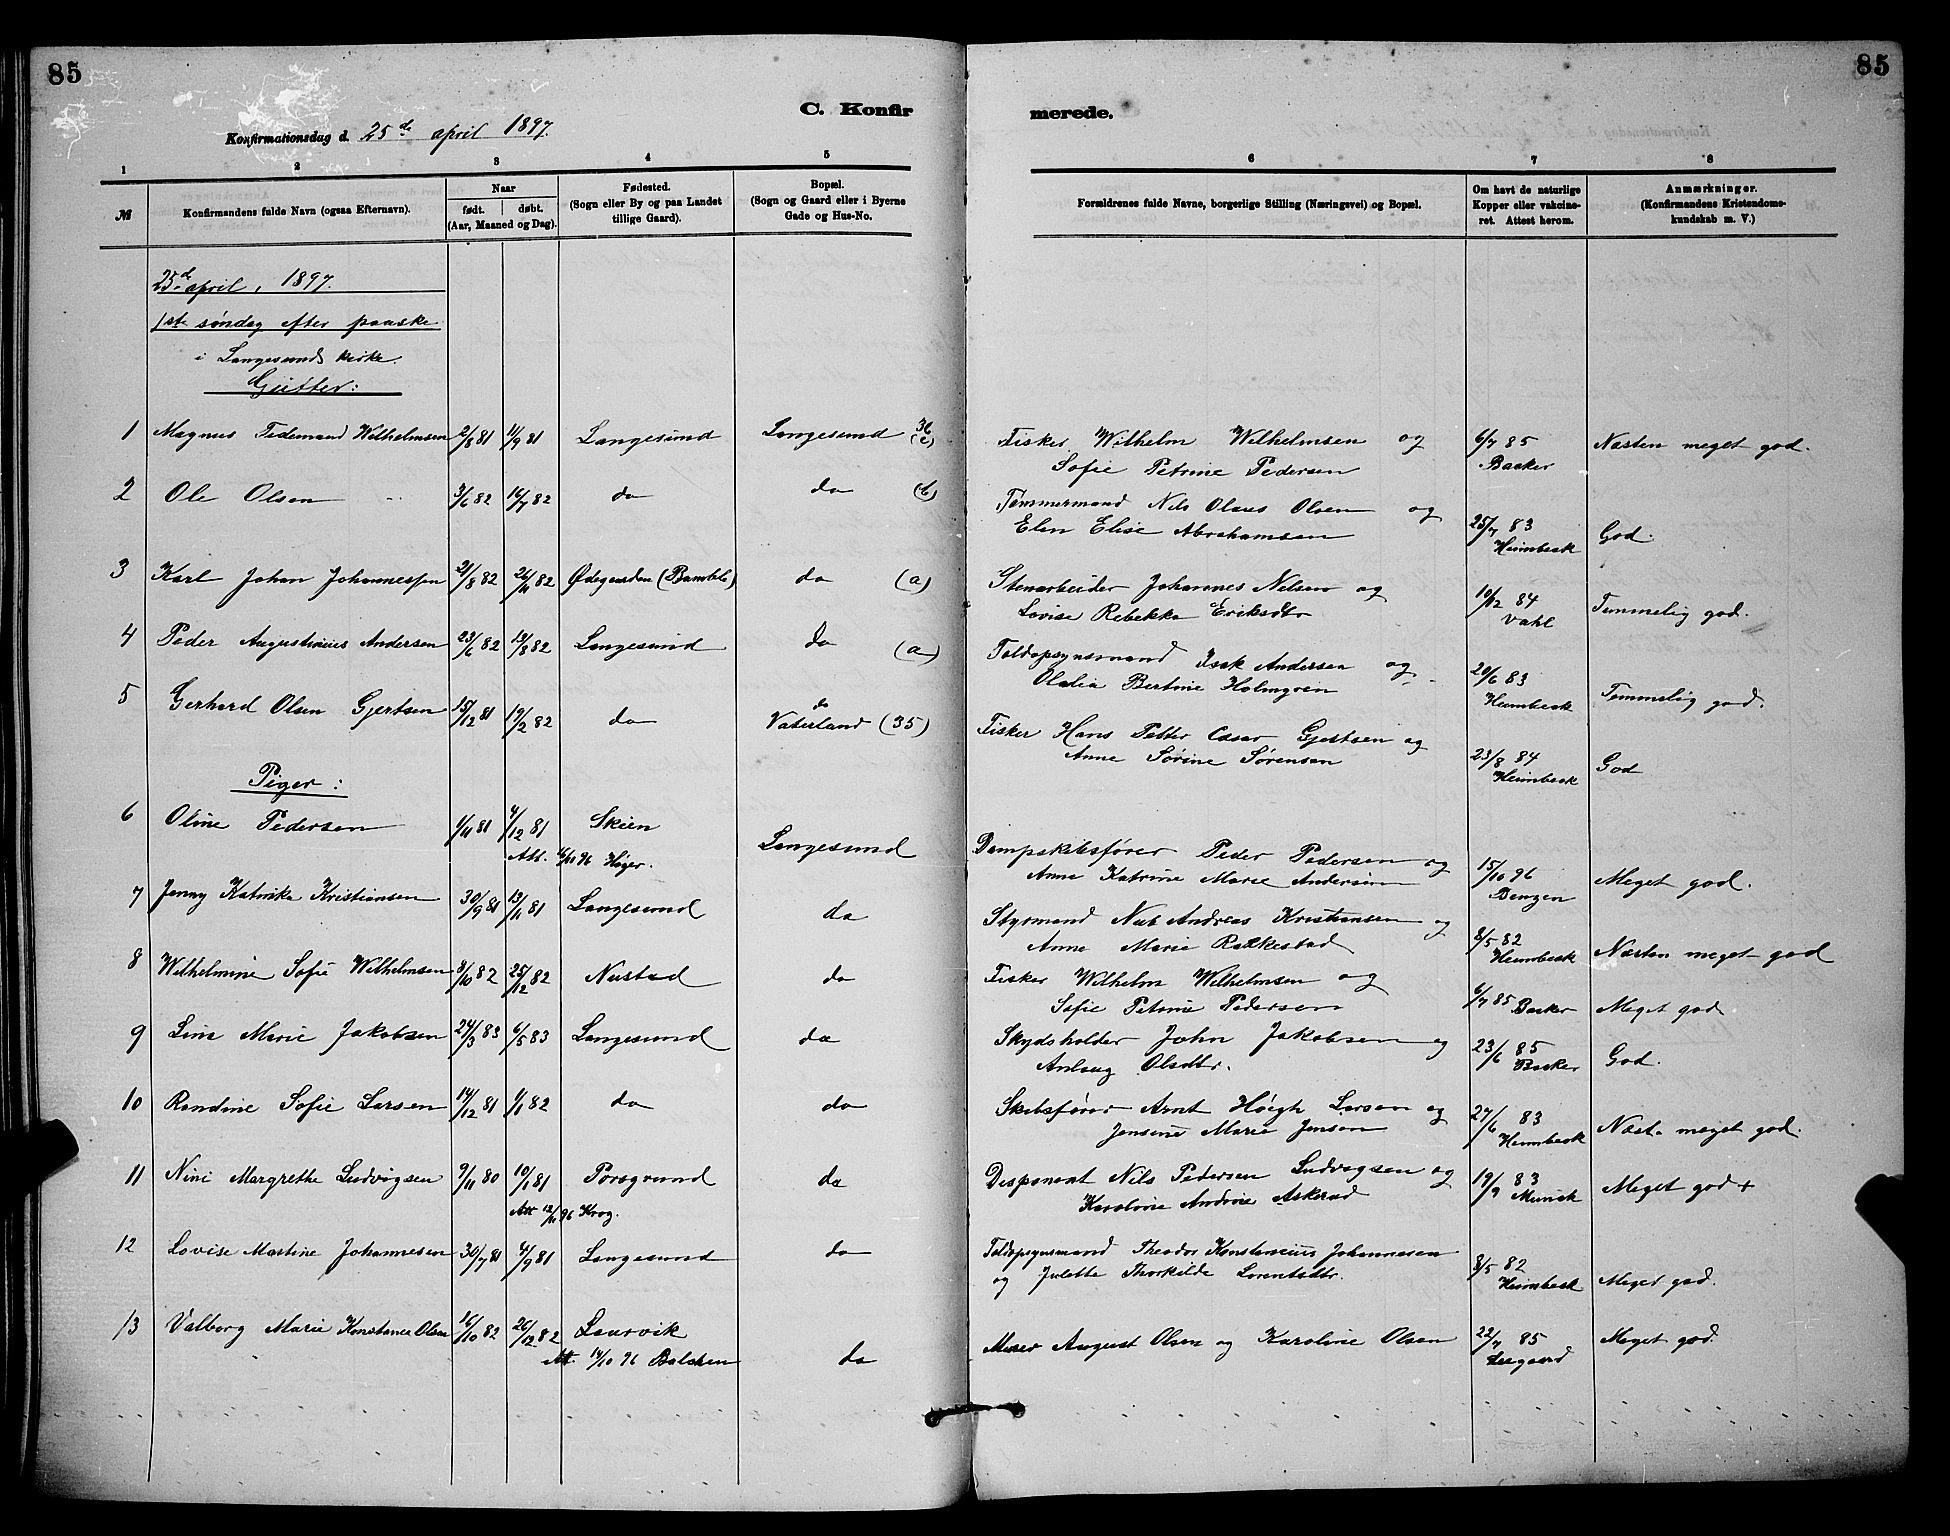 85
85
C. Konfirmerede.
Konfirmationsdag d. 25de april 1897.
1 2 3 4 5 6 7 8
№
Konfirmandens fulde Navn (ogsaa Efternavn).
Naar
født. døbt.
(Aar, Maaned og Dag).
Fødested.
(Sogn eller By og paa Landet
tillige Gaard).
Bopæl.
(Sogn og Gaard eller i Byerne
Gade og Hus-No.
Forældrenes fulde Navne, borgerlige Stilling (Næringsvei) og Bopæl.
Om havt de naturlige
Kopper eller vakcine-
ret. Attest herom.
Anmærkninger.
(Konfirmandens Kristendoms-
kundskab m. V.)
25de april, 1897.
1ste søndag efter paaske
i Langesunds kirke.
Gutter:
1 Magnus Tidemand Wilhelmsen 2/8 81 11/9 81 Langesund Langesund 36 (c) Fisker Wilhelm Wilhelmsen og 6/7 85 Næsten meget god.
Sofie Petrine Pedersen Backer
2 Ole Olsen 3/6 82 16/7 82 do do (b) Tømmermand Nils Olaus Olsen og 25/7 83 God.
Elen Elise Abrahamsen Heimbeck
3 Karl Johan Johannessen 21/8 82 26/11 82 Ødegaarden (Bamble) do (a) Stenarbeider Johannes Nilsen og 10/12 84 Temmelig god.
Lovise Rebekka Eriksdtr Vahl
4 Peder Augustinius Andersen 23/6 82 13/8 82 Langesund do (a) Toldopsynsmand Isak Andersen og 20/6 83 Temmelig god.
Olalia Bertine Holmgren Heimbeck
5 Gerhard Olsen Gjertsen 15/12 81 19/2 82 do do Vaterland (35) Fisker Hans Petter Casar Gjertsen og 23/8 84 God
Anne Sørine Sørensen Heimbeck
Piger:
6 Oline Pedersen 1/11 81 4/12 81 Skien Langesund Dampskibsfører Peder Pedersen og 15/10 96 Meget god.
Att. 16/10 96 Høyer. Anne Katrine Marie Andersen Bengen
7 Jenny Katinka Kristiansen 30/9 81 13/11 81 Langesund do Styrmand Nils Andreas Kristiansen og 8/5 82 Næsten meget god
Anne Marie Rakkestad Heimbeck
8 Wilhelmine Sofie Wilhelmsen 8/10 82 25/12 82 Nustad do Fisker Wilhelm Wilhelmsen og 6/7 85 Backer Meget god
Sofie Petrine Pedersen
9 Lina Marie Jakobsen 24/3 83 6/5 83 Langesund do Skydsholder John Jakobsen og 23/6 85 God.
Anlaug Olsdtr. Backer
10 Randine Sofie Larsen 14/12 81 1/1 82 do do Skibsfører Arnt Høigh Larsen og 27/6 83 Næst. meget god.
Jensine Marie Jensen Heimbeck
11 Nini Margrethe Ludvigsen 9/11 80 10/1 81 Porsgrund do Disponent Nils Pedersen Ludvigsen og 19/9 83 Meget god +
Att 12/11 96 Krog. Karoline Andrine Askerud Munch
12 Lovise Martine Johannesen 30/7 81 4/9 81 Langesund do Toldopsynsmand Theodor Konstansius Johannesen 8/5 82 Meget god.
og Julette Thorkilde Lorentsdtr. Heimbeck
13 Valborg Marie Konstance Olsen 16/10 82 26/12 82 Laurvik do Murer August Olsen og Karoline Olsen 22/7 85 Meget god.
Att. 14/10 96 Balchen